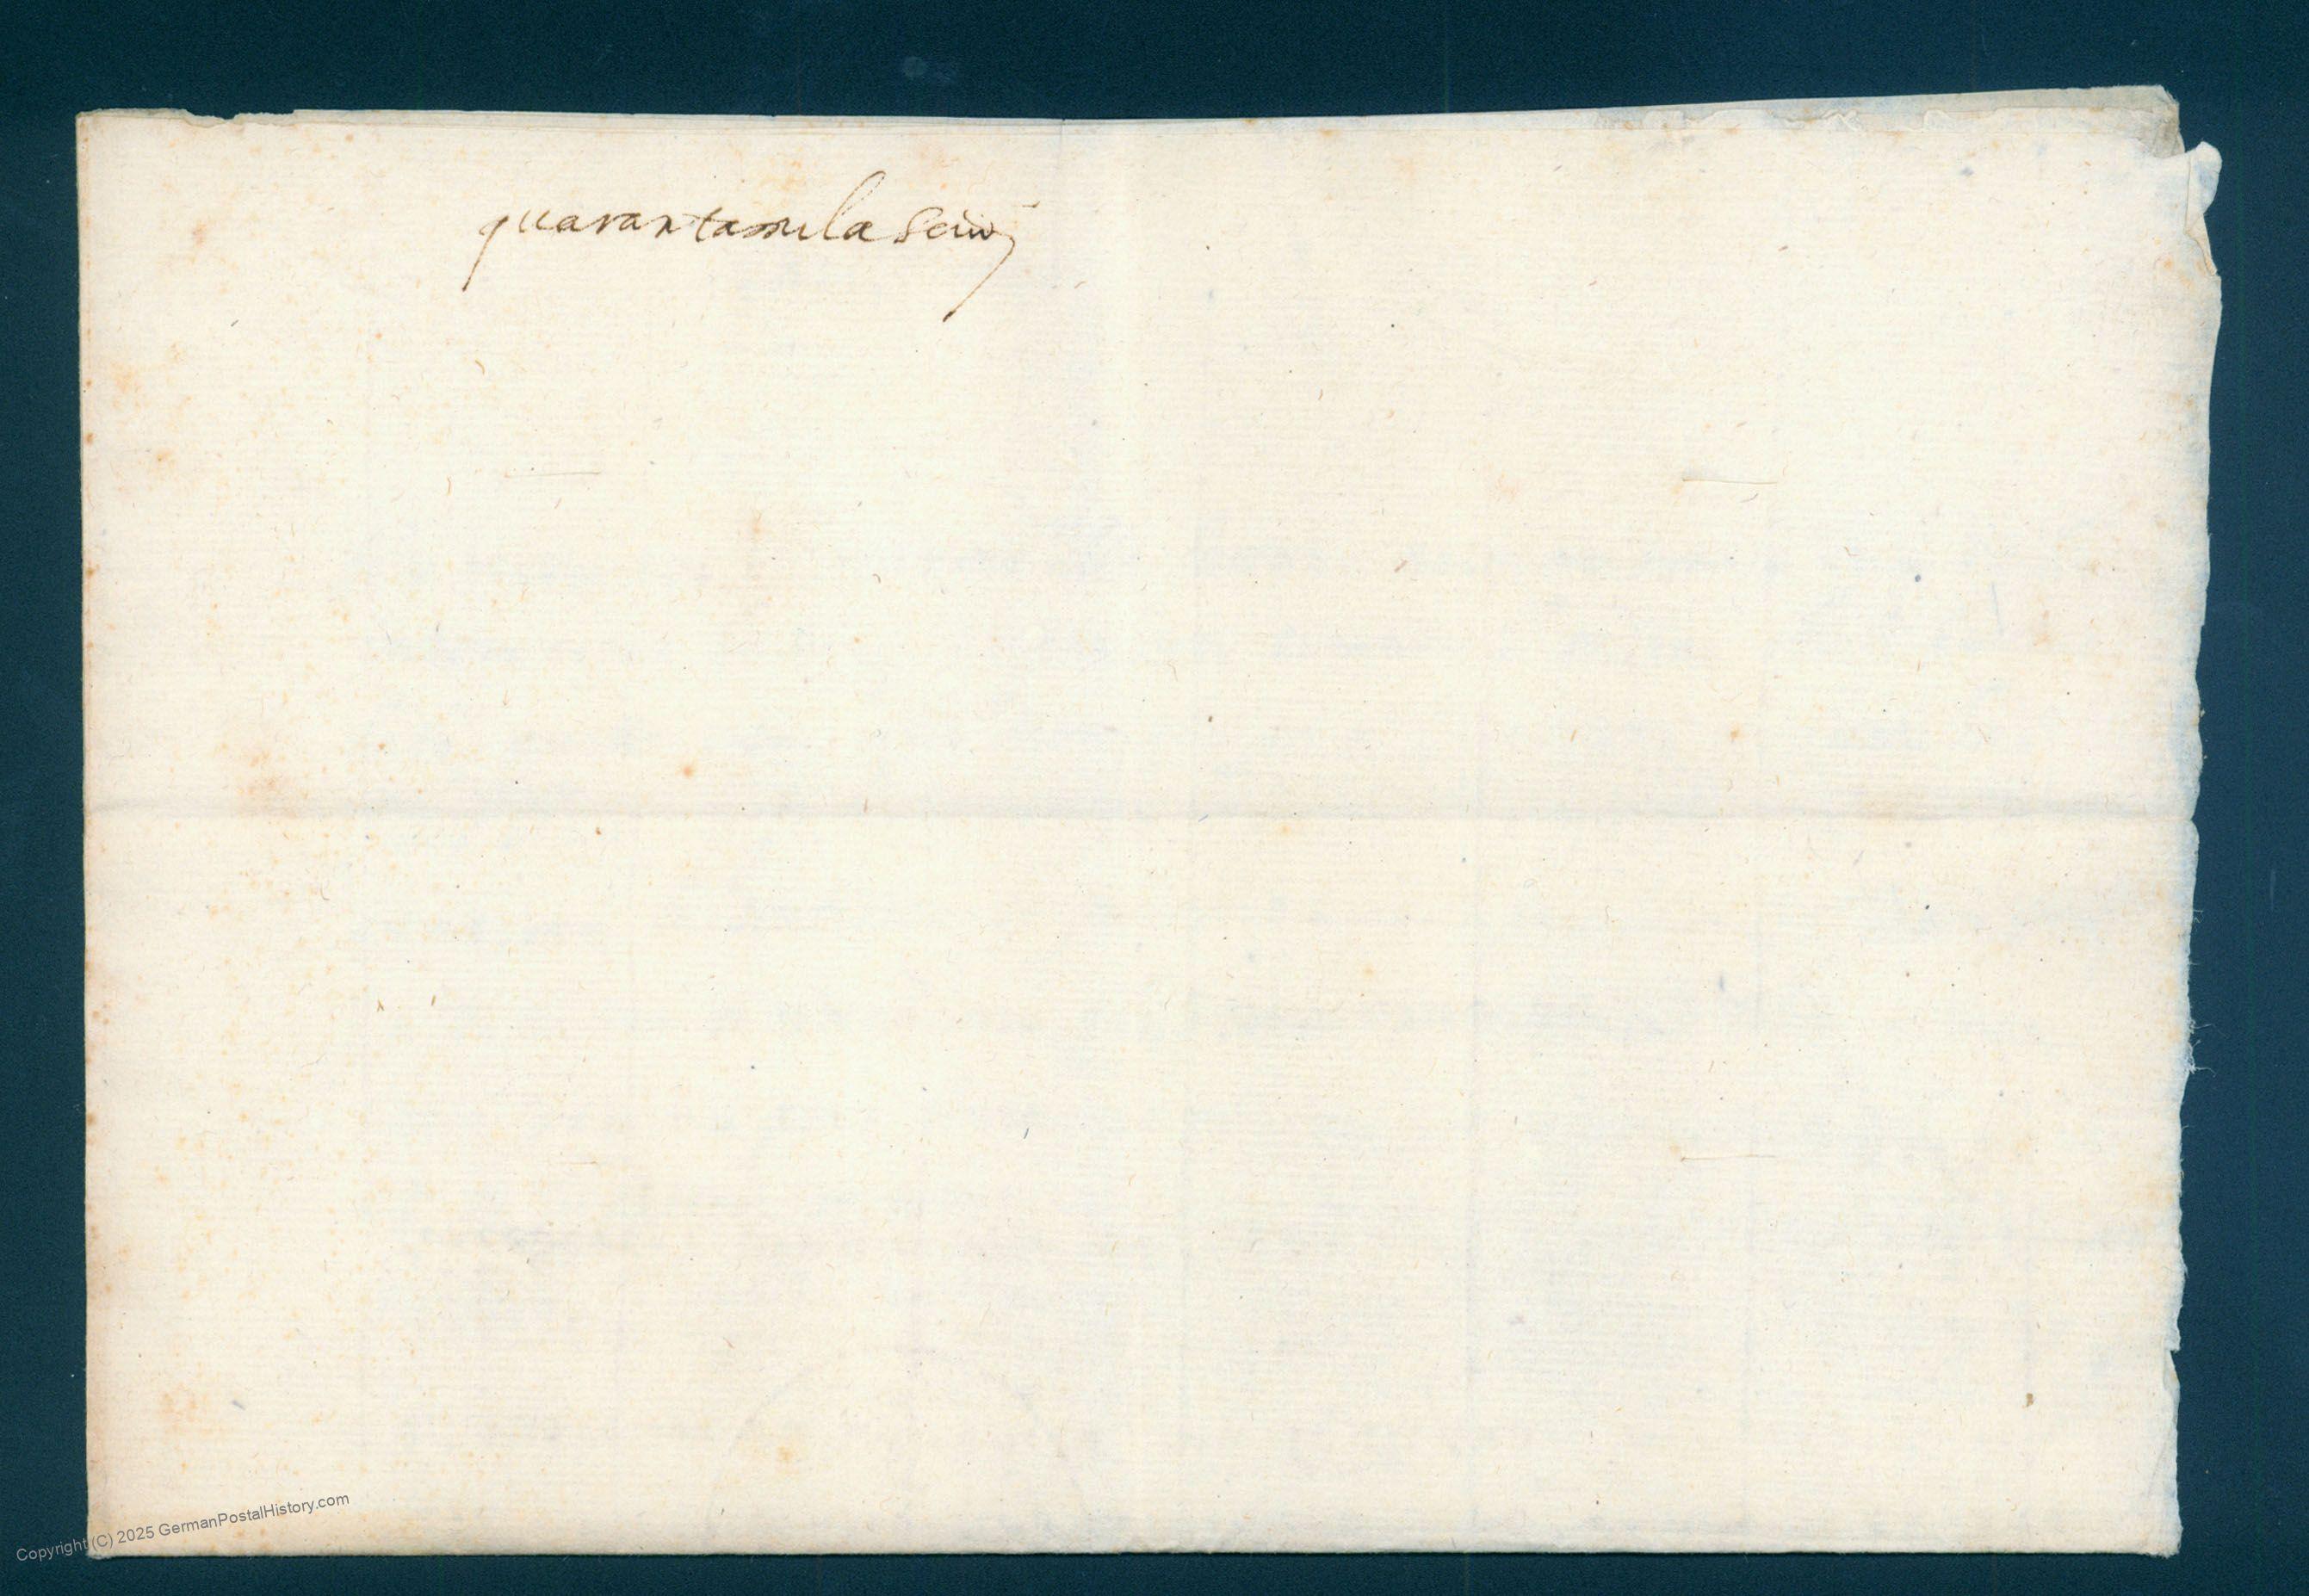 quarantamila scudj
Copyright (C) 2025 GermanPostalHistory.com